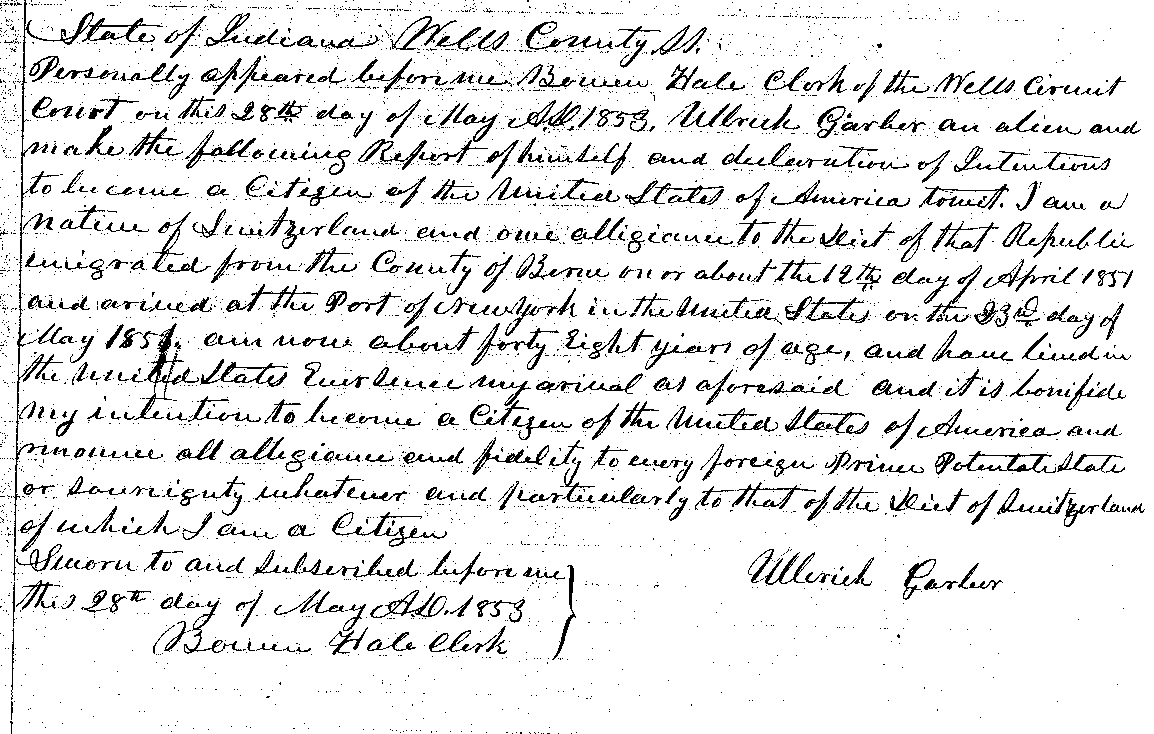 State of Indiana Wells County Ss.
Personally appeared before me Bowen Hale Clerk of the Wells Circuit
Court on this 28th day of May A.D. 1853. Ullrich Garber an alien and
make the following Report of himself and decleration of Intentions
to become a Citizen of the United States of America towit. I am a
native of Switzerland and owe allegiance to the Diet of that Republic
emigrated from the County of Berne on or about the 12th day of April 1851
and arived at the Port of New York in the United States on the 23rd day of
May 1851. am now about forty Eight years of age, and have lived in
the United States Ever Sence my arival as aforesaid and it is bonifide
my intention to become a Citizen of the United States of America and
renounce all allegiance and fidelity to every foreign Prince Potentate State
or sovrignty whatever and particularly to that of the Diet of Switzerland
of which I am a Citizen
Sworn to and Subscribed before me
this 28th day of May A.D. 1853
Bowen Hale Clerk
Ullerich Garber